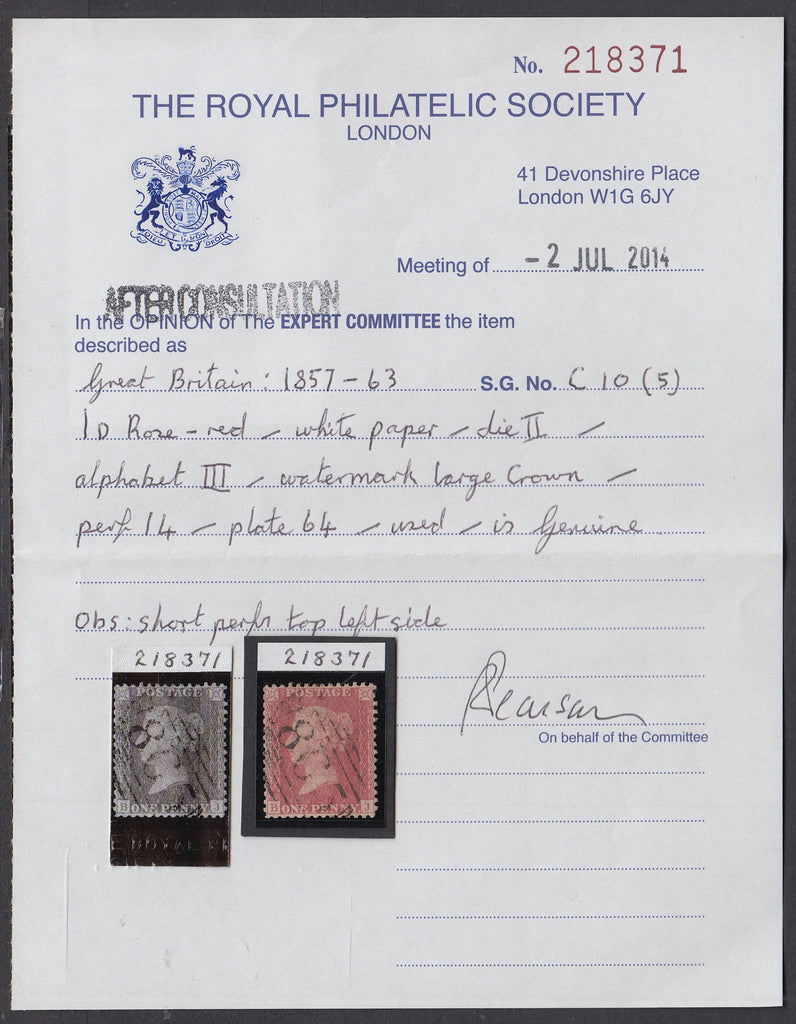 No. 218371
THE ROYAL PHILATELIC SOCIETY
LONDON
41 Devonshire Place
London W1G 6JY
DIEU ET MON DROIT
Meeting of - 2 JUL 2014
AFTER CONSULTATION
In the OPINION of The EXPERT COMMITTEE the item
described as
Great Britain: 1857-63 S.G. No. C 10 (5)
1D Rose-red - white paper - die II -
alphabet III - watermark large Crown -
perf 14 - plate 64 - used - is Genuine
Obs: short perfs top left side
218371
POSTAGE
B ONE PENNY J
ROYAL
218371
POSTAGE
B ONE PENNY J
On behalf of the Committee